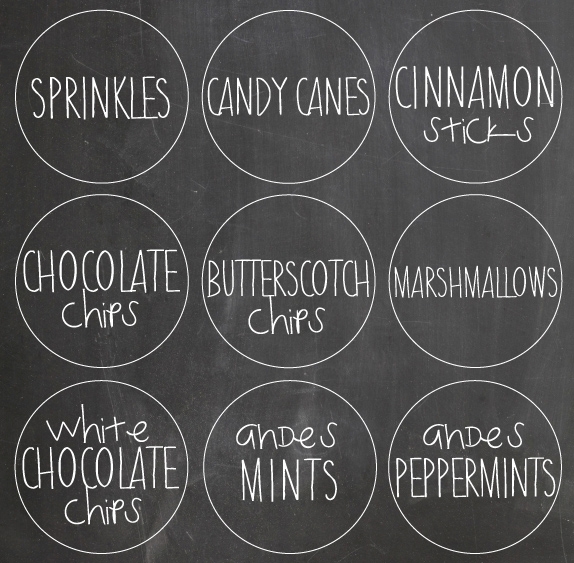 SPRINKLES
CANDY CANES
CINNAMON
sticks
CHOCOLATE
chips
BUTTERSCOTCH
chips
MARSHMALLOWS
white
CHOCOLATE
chips
andes
MINTS
andes
PEPPERMINTS